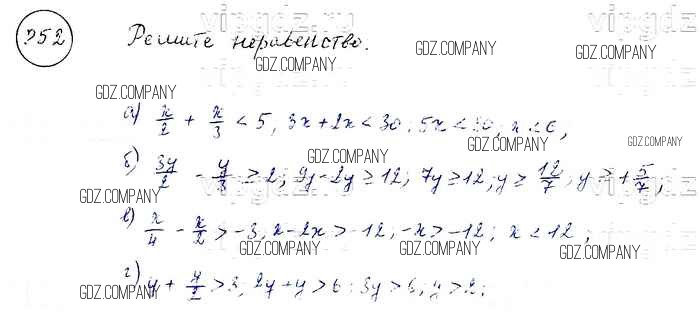 952 Решите неравенство.
а) x/2 + x/3 < 5, 3x + 2x < 30; 5x < 30, x < 6,
б) 3y/2 - y/3 ≥ 2; 9y - 2y ≥ 12; 7y ≥ 12, y ≥ 12/7, y ≥ 1 5/7;
в) x/4 - x/2 > -3, x - 2x > -12, -x > -12; x < 12;
г) y + y/2 > 3, 2y + y > 6; 3y > 6, y > 2;
vipgdz
vipgdz
GDZ.COMPANY
GDZ.COMPANY
GDZ.COMPANY
GDZ.COMPANY
GDZ.COMPANY
GDZ.COMPANY
GDZ.COMPANY
GDZ.COMPANY
GDZ.COMPANY
GDZ.COMPANY
GDZ.COMPANY
GDZ.COMPANY